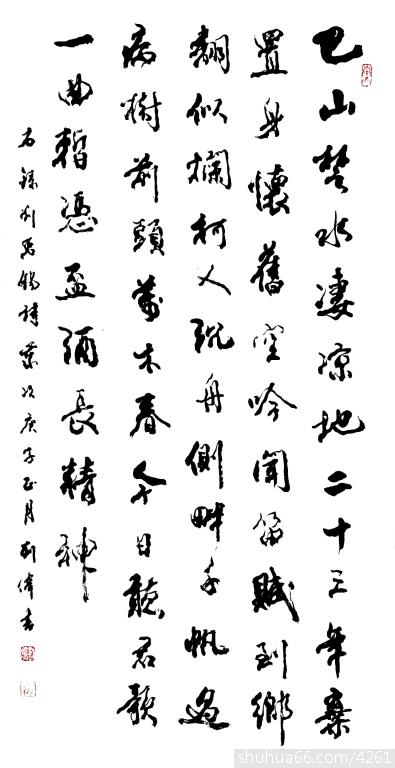 巴山楚水凄涼地二十三年棄
置身懷舊空吟聞笛賦到鄉
翻似爛柯人沉舟側畔千帆過
病樹前頭萬木春今日聽君歌
一曲暫憑盃酒長精神
右錄劉禹錫詩歲次庚子正月劉偉書
shuhua66.com/4261